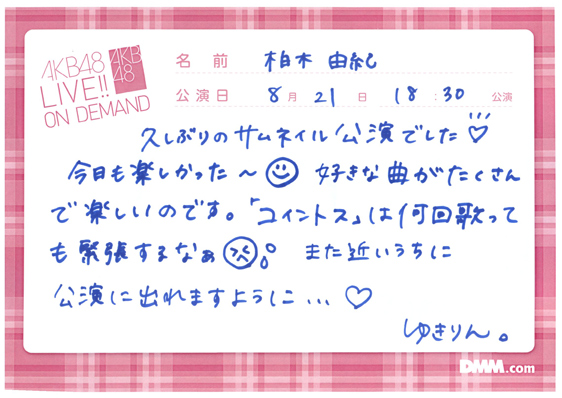 AKB48
LIVE!!
ON DEMAND
AKB
48
名前 柏木 由紀
公演日 8月 21日 18:30 公演
久しぶりのサムネイル公演でした♡
今日も楽しかった〜☺ 好きな曲がたくさん
で楽しいのです。「コイントス」は何回歌って
も緊張するなぁ また近いうちに
公演に出れますように…♡
ゆきりん。
DMM.com